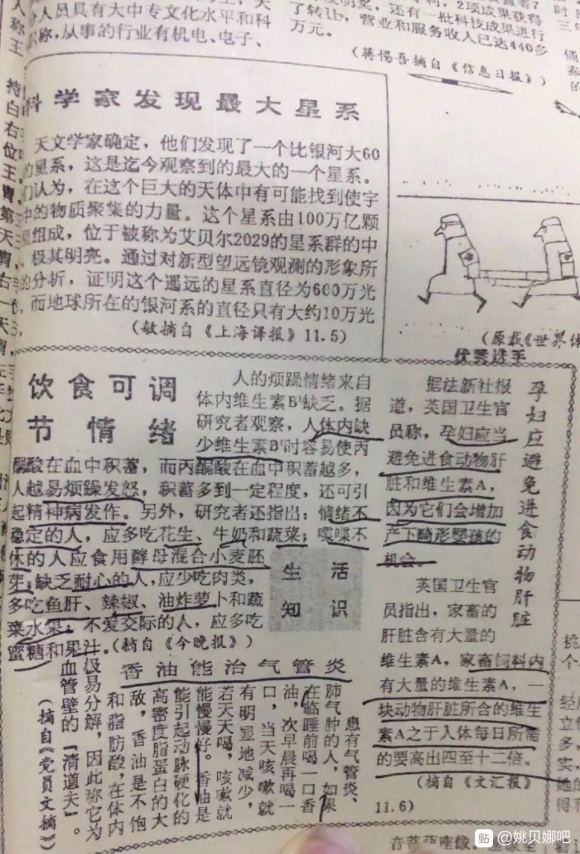 人称王
介人员具有大中专文化水平和科
称,从事的行业有机电、电子、
2项成果获得
了转让,营业和服务收入已达440多
万元。
(蒋惕吾摘自《信息日报》)
科学家发现最大星系
天文学家确定,他们发现了一个比银河大60
的星系,这是迄今观察到的最大的一个星系。
们认为,在这个巨大的天体中有可能找到使宇
中的物质聚集的力量。这个星系由100万亿颗
组成,位于被称为艾贝尔2029的星系群的中
极其明亮。通过对新型望远镜观测的形象所
的分析,证明这个遥远的星系直径为600万光
而地球所在的银河系的直径只有大约10万光
(敏摘自《上海译报》11.5)
(原载《世界体
优秀选手
饮食可调
节情绪
人的烦躁情绪来自
体内维生素B'缺乏。据
研究者观察,人体内缺
少维生素B'时容易使丙
酮酸在血中积蓄,而丙酮酸在血中积蓄越多,
人越易烦躁发怒,积蓄多到一定程度,还可引
起精神病发作。另外,研究者还指出:情绪不
稳定的人,应多吃花生、牛奶和蔬菜;喋喋不
休的人应食用酵母混合小麦胚
芽;缺乏耐心的人,应少吃肉类,
多吃鱼肝、辣椒、油炸萝卜和蔬
菜水果;不爱交际的人,应多吃
蜜糖和果汁。(摘自《今晚报》)
生活
知识
孕妇应避免进食动物肝脏
据法新社报
道,英国卫生官
员称,孕妇应当
避免进食动物肝
脏和维生素A,
因为它们会增加
产下畸形婴孩的
机会。
英国卫生官
员指出,家畜的
肝脏含有大量的
维生素A,家畜饲料内
有大量的维生素A,一
块动物肝脏所含的维生
素A之于人体每日所需
的要高出四至十二倍。
(摘自《文汇报》
11.6)
香油能治气管炎
患有气管炎、
肺气肿的人,如果
在临睡前喝一口香
油,次早晨再喝一
口,当天咳嗽就
有明显地减少,
若天天喝,咳嗽就
能慢慢好。香油是
能引起动脉硬化的
高密度脂蛋白的大
敌,香油是不饱
和脂肪酸,在体内
极易分解,因此称它为
血管壁的“清道夫”。
(摘自《党员文摘》)
音菩萨座像
贴 @姚贝娜吧